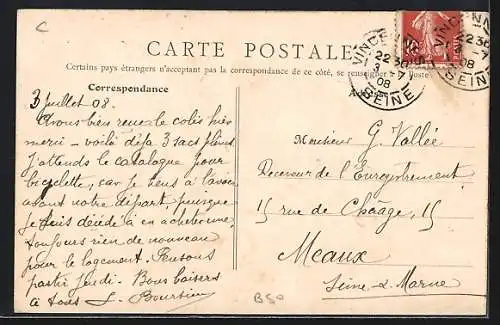 C
CARTE POSTALE
Certains pays étrangers n'acceptant pas la correspondance de ce côté, se renseigner à la Poste
Correspondance
3 juillet 08.
Avons bien reçu le colis hier
merci - voilà déjà 3 sacs pleins
J'attends le catalogue pour
bicyclette, car je tiens à l'avoir
avant notre départ puisque
je suis décidé à en acheter une,
toujours rien de nouveau
pour le logement. Pensons
partir jeudi. Bons baisers
à tous
VINCENNES
22 30
3 -7
08
SEINE
VINCENN
22 30
-7
08
SEINE
Monsieur G. Vallée
Receveur de l'Enregistrement
15 rue de Chaâge, 15
Meaux
Seine & Marne
B50